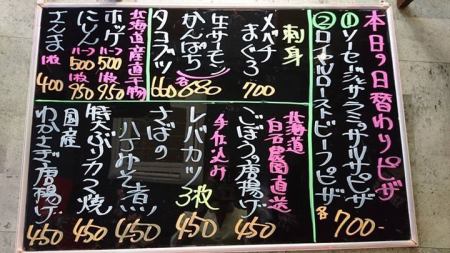 本日の日替わりピザ
①ソーセージ&サラミのサルサピザ
②ロイヤルローストビーフピザ
各700-
刺身
メバチまぐろ 700
生サーモン
かんぱち 各680
タコブツ 660
北海道産直干物
ホッケ ハーフ500 1枚950
にしん ハーフ500 1枚950
さんま 1枚400
北海道白石農園直送
ごぼうの唐揚げ 450
手仕込み
レバカツ 3枚 450
さばの八丁みそ煮 450
特大ぶりカマ焼 450
国産
わかさぎ唐揚げ 450